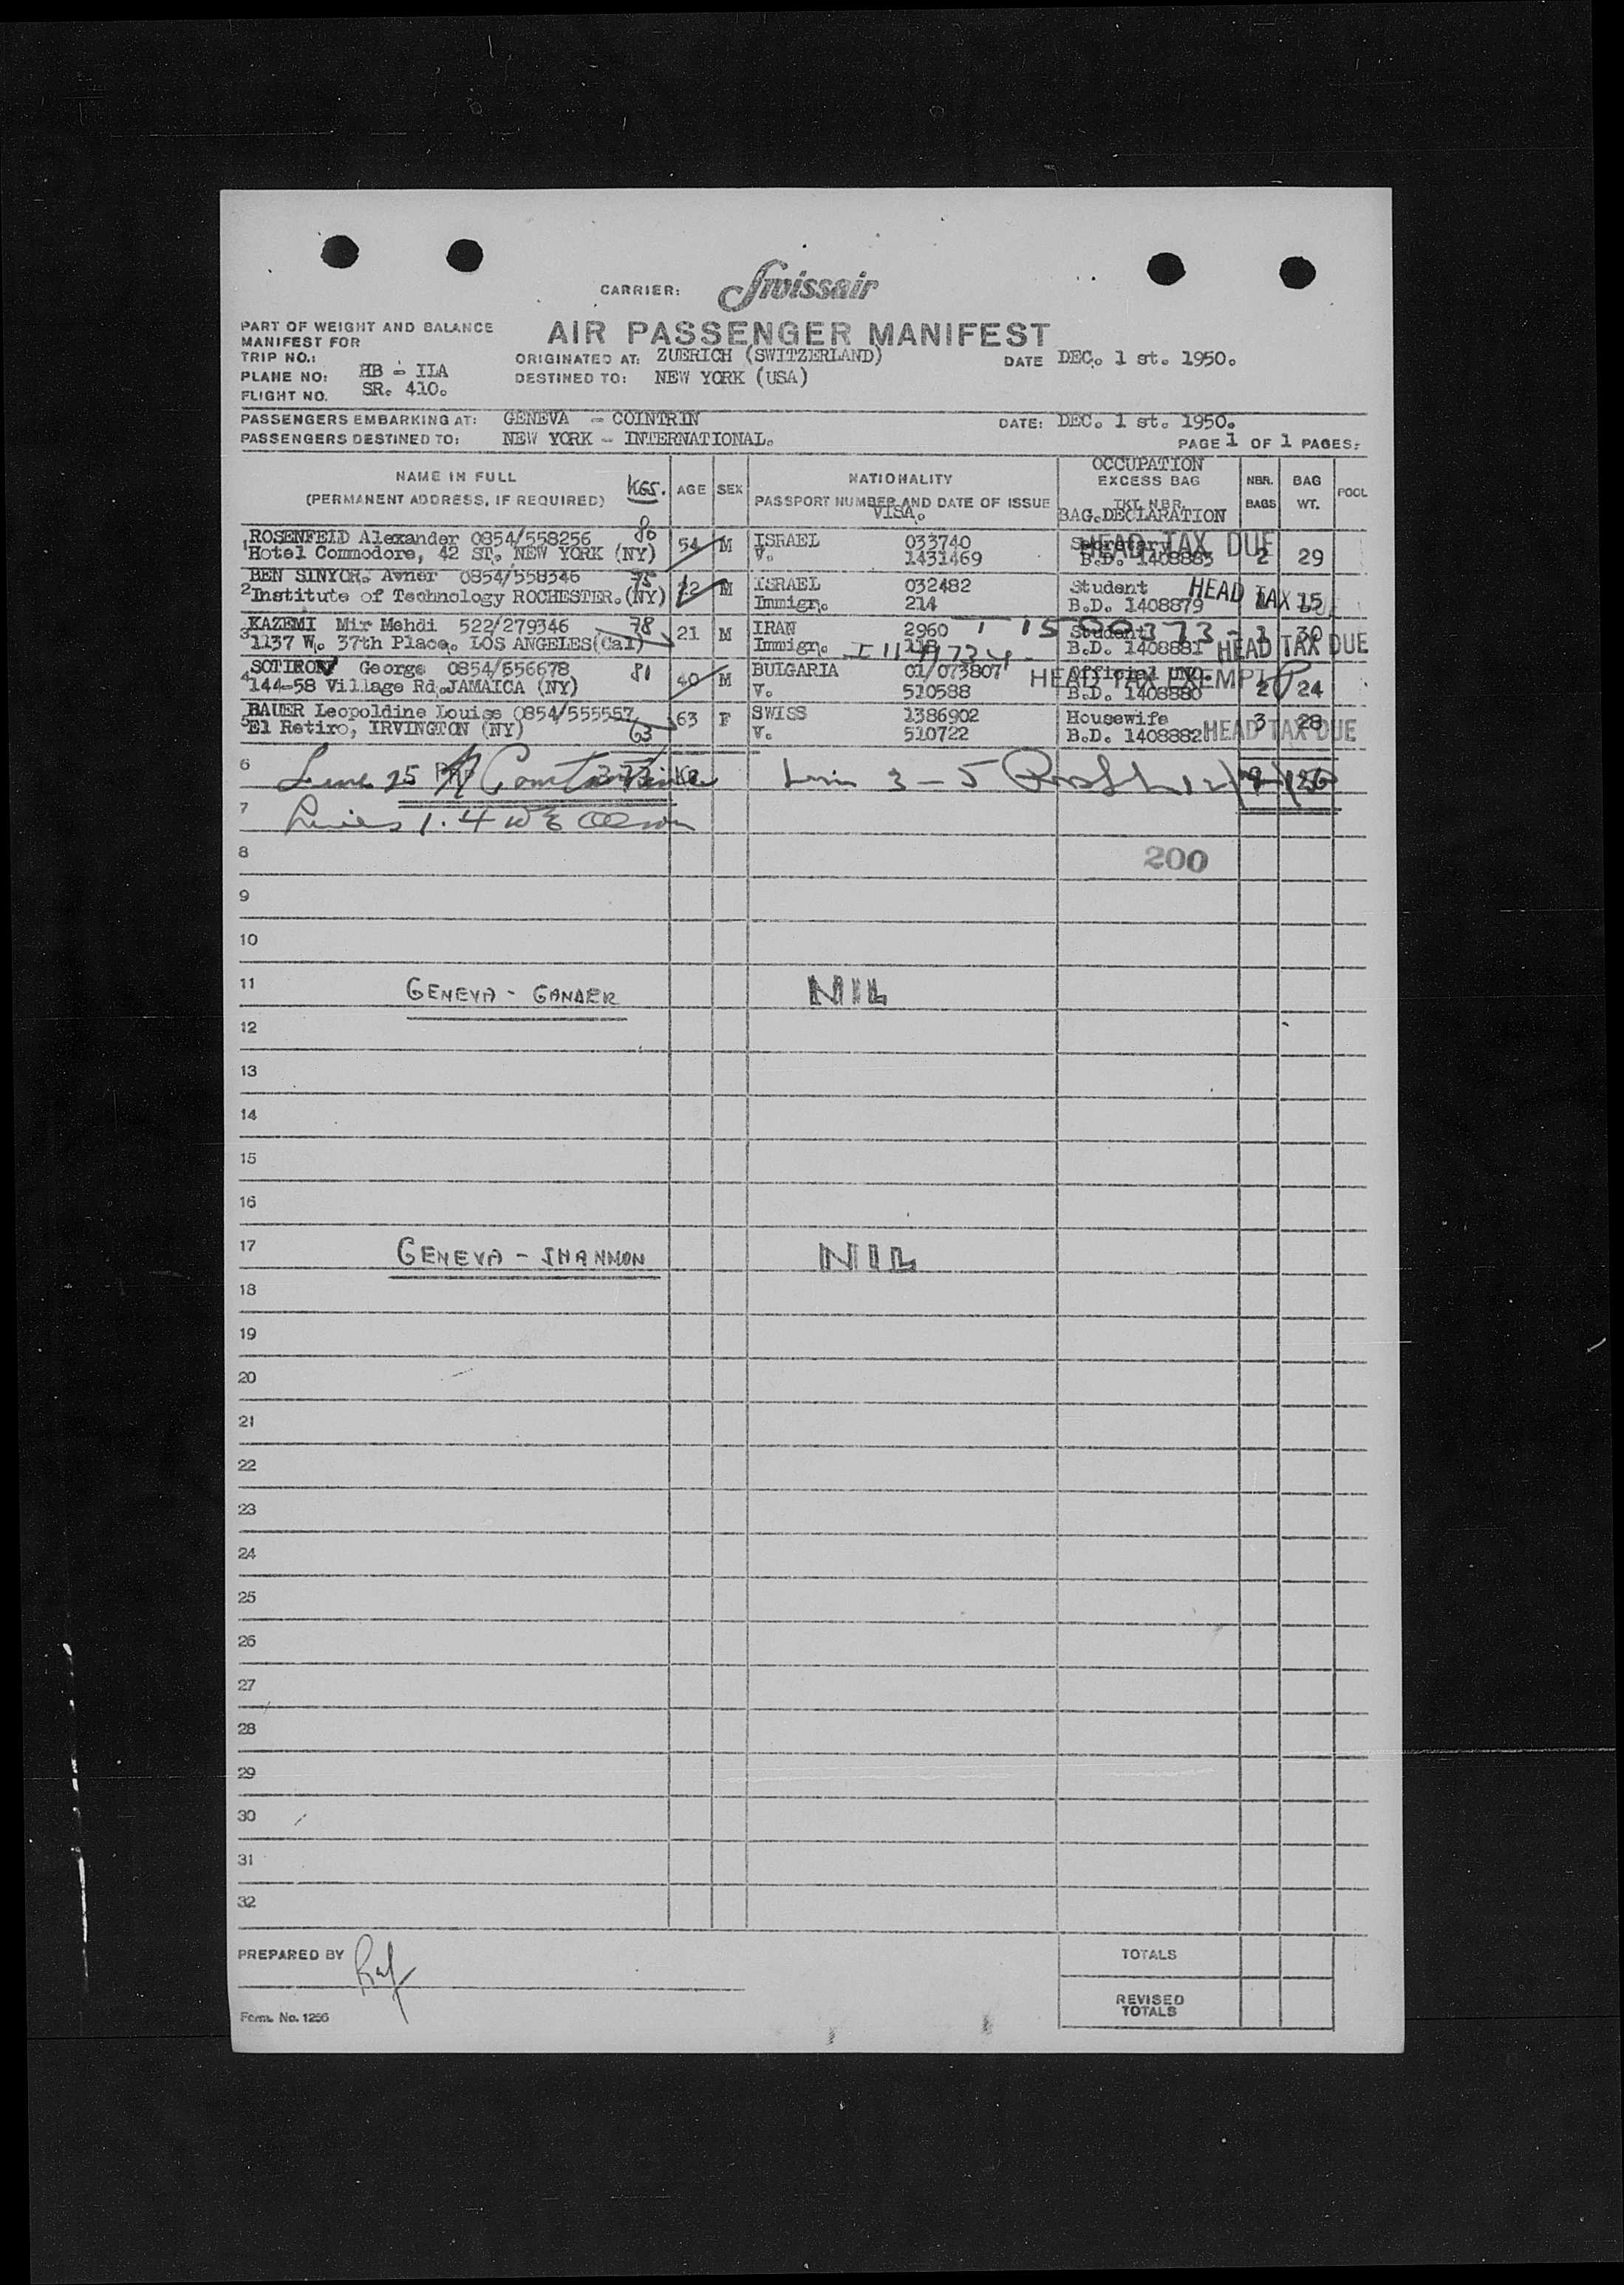 CARRIER: Swissair
AIR PASSENGER MANIFEST
PART OF WEIGHT AND BALANCE
MANIFEST FOR
TRIP NO.:
PLANE NO: HB - ILA
FLIGHT NO. SR. 410.
ORIGINATED AT: ZUERICH (SWITZERLAND) DATE DEC. 1 st. 1950.
DESTINED TO: NEW YORK (USA)
PASSENGERS EMBARKING AT: GENEVA - COINTRIN DATE: DEC. 1 st. 1950.
PASSENGERS DESTINED TO: NEW YORK - INTERNATIONAL.
PAGE 1 OF 1 PAGES.
NAME IN FULL
(PERMANENT ADDRESS, IF REQUIRED) KGS. AGE SEX
NATIONALITY
PASSPORT NUMBER AND DATE OF ISSUE
VISA.
OCCUPATION
EXCESS BAG
TKT. NBR.
BAG.DECLARATION
NBR. BAGS
BAG WT.
POOL
1 ROSENFELD Alexander 0854/558256 80 54 M ISRAEL 033740 Secretary HEAD TAX DUE
Hotel Commodore, 42 ST. NEW YORK (NY) V. 1431469 B.D. 1408883 2 29
2 BEN SINYOR. Avner 0854/558346 75 22 M ISRAEL 032482 Student HEAD TAX DUE
Institute of Technology ROCHESTER.(NY) Immigr. 214 B.D. 1408879 1 15
3 KAZEMI Mir Mehdi 522/279346 78 21 M IRAN 2960 Student 1 30
1137 W. 37th Place. LOS ANGELES(Cal) Immigr. 118 B.D. 1408881 HEAD TAX DUE
4 SOTIROV George 0854/556678 81 40 M BULGARIA 01/073807 Official UNO. HEAD TAX EXEMPT
144-58 Village Rd.JAMAICA (NY) V. 510588 B.D. 1408880 2 24
5 BAUER Leopoldine Louise 0854/555557 63 63 F SWISS 1386902 Housewife 3 28
El Retiro, IRVINGTON (NY) V. 510722 B.D. 1408882 HEAD TAX DUE
6
7
8 200
9
10
11 GENEVA - GANDER NIL
12
13
14
15
16
17 GENEVA - SHANNON NIL
18
19
20
21
22
23
24
25
26
27
28
29
30
31
32
PREPARED BY
TOTALS
REVISED
TOTALS
Form. No. 1256